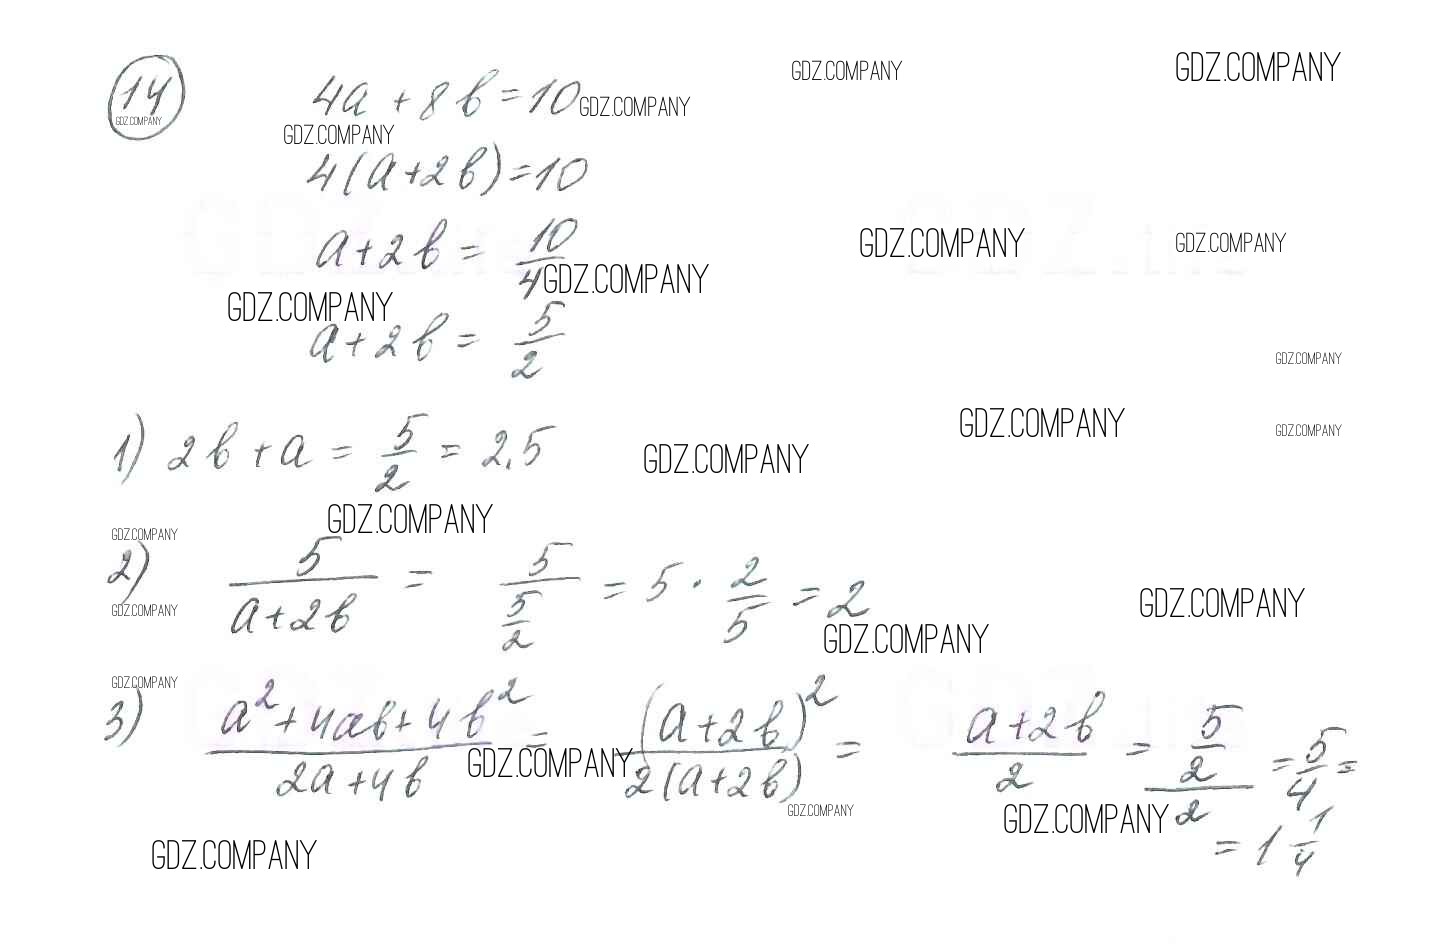 GDZ.COMPANY
GDZ.COMPANY
14
GDZ.COMPANY
4a + 8b = 10
GDZ.COMPANY
GDZ.COMPANY
4(a+2b)=10
a+2b = 10/4
GDZ.COMPANY
GDZ.COMPANY
GDZ.COMPANY
GDZ.COMPANY
a+2b = 5/2
GDZ.COMPANY
1) 2b+a = 5/2 = 2,5
GDZ.COMPANY
GDZ.COMPANY
GDZ.COMPANY
GDZ.COMPANY
GDZ.COMPANY
2) 5/(a+2b) = 5/(5/2) = 5 · 2/5 = 2
GDZ.COMPANY
GDZ.COMPANY
GDZ.COMPANY
GDZ.COMPANY
3) (a²+4ab+4b²)/(2a+4b) = (a+2b)²/(2(a+2b)) = (a+2b)/2 = (5/2)/2 = 5/4 =
GDZ.COMPANY
GDZ.COMPANY
GDZ.COMPANY
= 1 1/4
GDZ.COMPANY